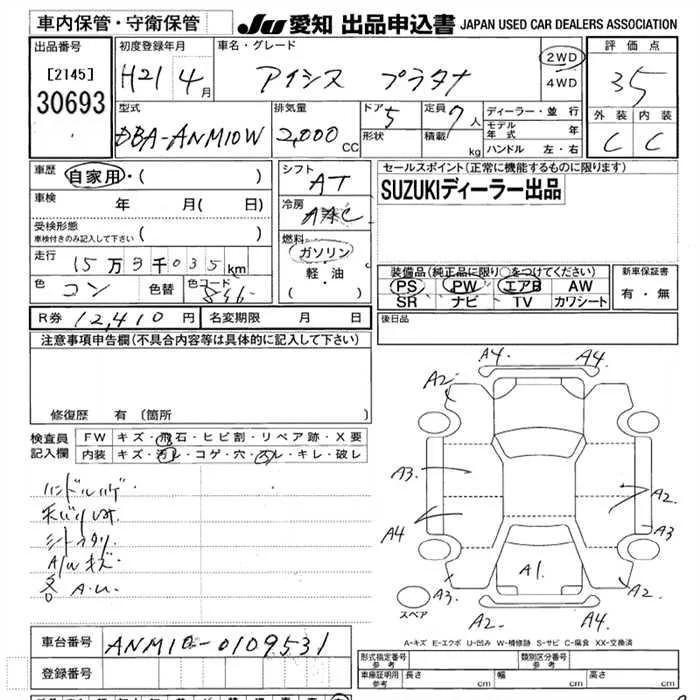 車内保管・守衛保管
JU 愛知 出品申込書 JAPAN USED CAR DEALERS ASSOCIATION
出品番号
[2145]
30693
初度登録年月
H21 4月
車名・グレード
アイシス プラタナ
2WD
4WD
評価点
3.5
外装 内装
C C
型式
DBA-ANM10W
排気量
2,000 CC
ドア 5
形状
定員 7人
積載 kg
ディーラー・並行
モデル年式 年
ハンドル 左・右
車歴 自家用・( )
車検 年 月( 日)
受検形態
車検付きのみ記入して下さい ( )
走行 15万3千035km
色 コン 色替 色コード 8S6
シフト AT
冷房 AAC
燃料
ガソリン
軽・油
( )
セールスポイント(正常に機能するものに限ります)
SUZUKIディーラー出品
装備品(純正品に限り○をつけてください)
PS PW エアB AW
SR ナビ TV カワシート
新車保証書
有・無
R券 12,410円 名変期限 月 日
後日品
注意事項申告欄(不具合内容等は具体的に記入して下さい)
修復歴 有(箇所
検査員
記入欄
FW キズ・飛石・ヒビ割・リペア跡・X要
内装 キズ・汚レ・コゲ・穴・スレ・キレ・破レ
ハンドルハゲ
シートスタリ
A/Wキズ
各 A.U.
A4. A4.
A2.
A3.
A4
A2.
A3
A1.
A3. A2.
A2. A4.
スペア
A-キズ E-エクボ U-凹み W-補修跡 S-サビ C-腐食 XX-交換済
車台番号 ANM10-0109531
登録番号
形式指定番号
参考
類別区分番号
参考
車庫証明用
参考
長さ cm 幅 cm 高さ cm